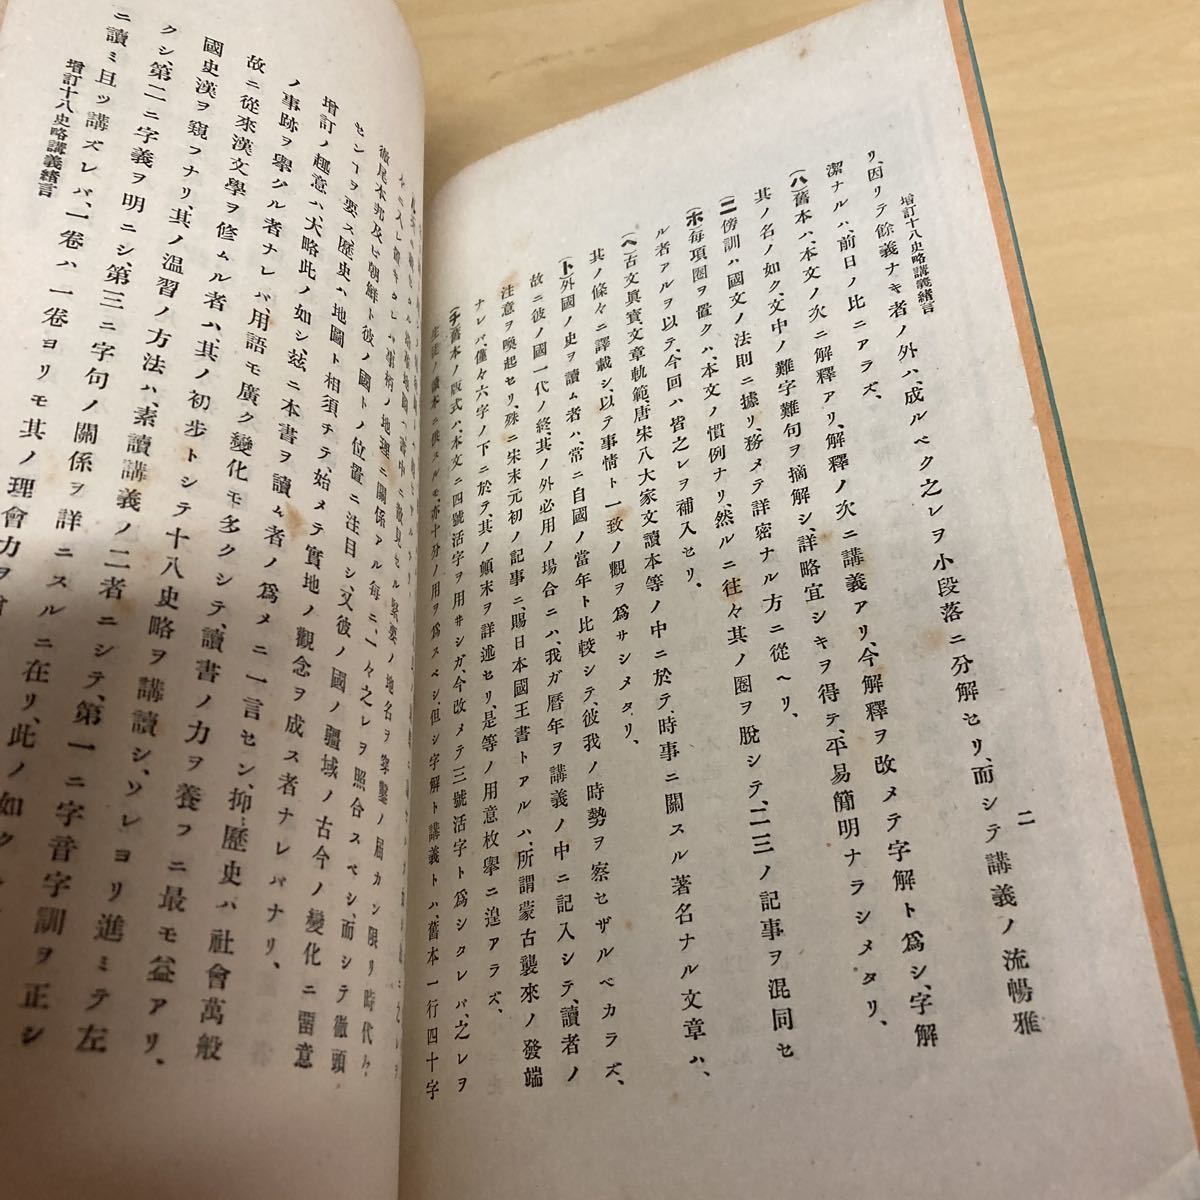 增訂十八史略講義緖言
二
リ、因リテ餘義ナキ者ノ外ハ、成ルベク之レヲ小段落ニ分解セリ、而シテ講義ノ流暢雅
潔ナルハ、前日ノ比ニアラズ、
(ハ)舊本ハ、本文ノ次ニ解釋アリ、解釋ノ次ニ講義アリ、今解釋ヲ改メテ字解ト爲シ、字解
其ノ名ノ如ク、文中ノ難字難句ヲ摘解シ、詳略宜シキヲ得テ、平易簡明ナラシメタリ、
(ニ)傍訓ハ國文ノ法則ニ據リ、務メテ詳密ナル方ニ從ヘリ、
(ホ)每項圈ヲ置クハ、本文ノ慣例ナリ、然ルニ往々其ノ圈ヲ脫シテ、二三ノ記事ヲ混同セ
ル者アルヲ以テ、今回ハ皆之レヲ補入セリ、
(ヘ)古文眞寶文章軌範、唐宋八大家文讀本等ノ中ニ於テ、時事ニ關スル著名ナル文章ハ、
其ノ條々ニ譯載シ、以テ事情ト一致ノ觀ヲ爲サシメタリ、
(ト)外國ノ史ヲ讀ム者ハ、常ニ自國ノ當年ト比較シテ、彼我ノ時勢ヲ察セザルベカラズ、
故ニ彼ノ國一代ノ終、其ノ外必用ノ場合ニハ、我ガ曆年ヲ講義ノ中ニ記入シテ、讀者ノ
注意ヲ喚起セリ、殊ニ宋末元初ノ記事ニ、賜日本國王書トアルハ、所謂蒙古襲來ノ發端
ナレバ、僅々六字ノ下ニ於テ、其ノ顚末ヲ詳述セリ、是等ノ用意枚擧ニ遑アラズ、
(チ)舊本ノ版式ハ、本文ニ四號活字ヲ用井シガ、今改メテ三號活字ト爲シタレバ、之レヲ
生徒ノ讀本ニ供スルモ、亦十分ノ用ヲ爲スベシ、但シ字解ト講義トハ、舊本一行四十字
ノ地理ニ關係アル每ニ、一々之レヲ照合スベシ、而シテ徹頭
徹尾本邦及ビ朝鮮ト彼ノ國トノ位置ニ注目シ、又彼ノ國ノ疆域ノ古今ノ變化ニ留意
センコヲ要ス歷史ハ地圖ト相須チテ、始メテ實地ノ觀念ヲ成ス者ナレバナリ、
增訂ノ趣意ハ、大略此ノ如シ、玆ニ本書ヲ讀ム者ノ爲メニ一言セン、抑歷史ハ社會萬般
ノ事跡ヲ擧グル者ナレバ、用語モ廣ク變化モ多クシテ、讀書ノ力ヲ養フニ最モ益アリ、
故ニ從來漢文學ヲ修ムル者ハ、其ノ初步トシテ十八史略ヲ講讀シ、ソレヨリ進ミテ左
國史漢ヲ窺フナリ、其ノ溫習ノ方法ハ、素讀講義ノ二者ニシテ、第一ニ字音字訓ヲ正シ
クシ、第二ニ字義ヲ明ニシ、第三ニ字句ノ關係ヲ詳ニスルニ在リ、此ノ如ク
ニ讀ミ且ツ講ズレバ、一卷ハ一卷ヨリモ其ノ理會力ヲ
增訂十八史略講義緖言